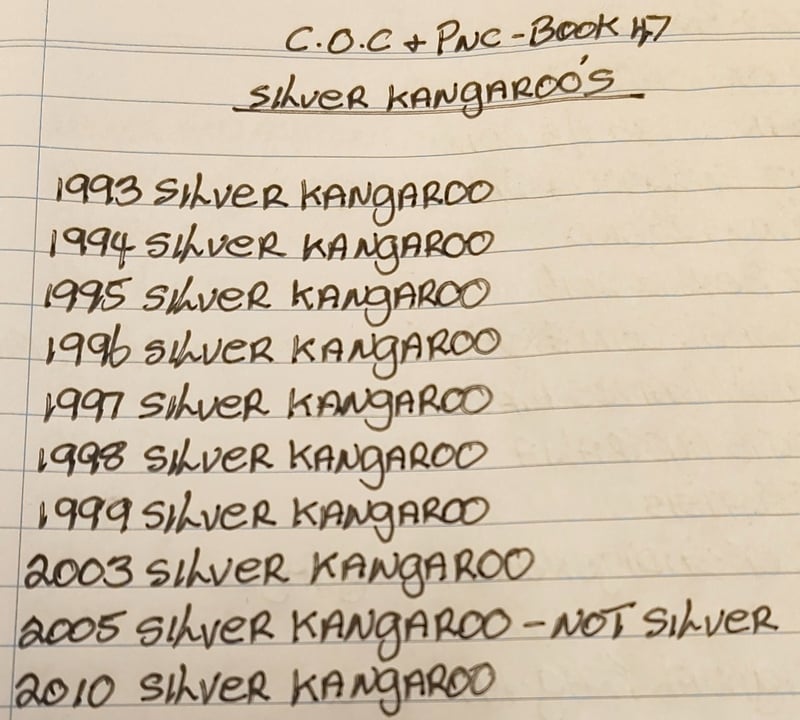 C.O.C + PNC - BOOK 47
SILVER KANGAROO'S
1993 SILVER KANGAROO
1994 SILVER KANGAROO
1995 SILVER KANGAROO
1996 SILVER KANGAROO
1997 SILVER KANGAROO
1998 SILVER KANGAROO
1999 SILVER KANGAROO
2003 SILVER KANGAROO
2005 SILVER KANGAROO - NOT SILVER
2010 SILVER KANGAROO